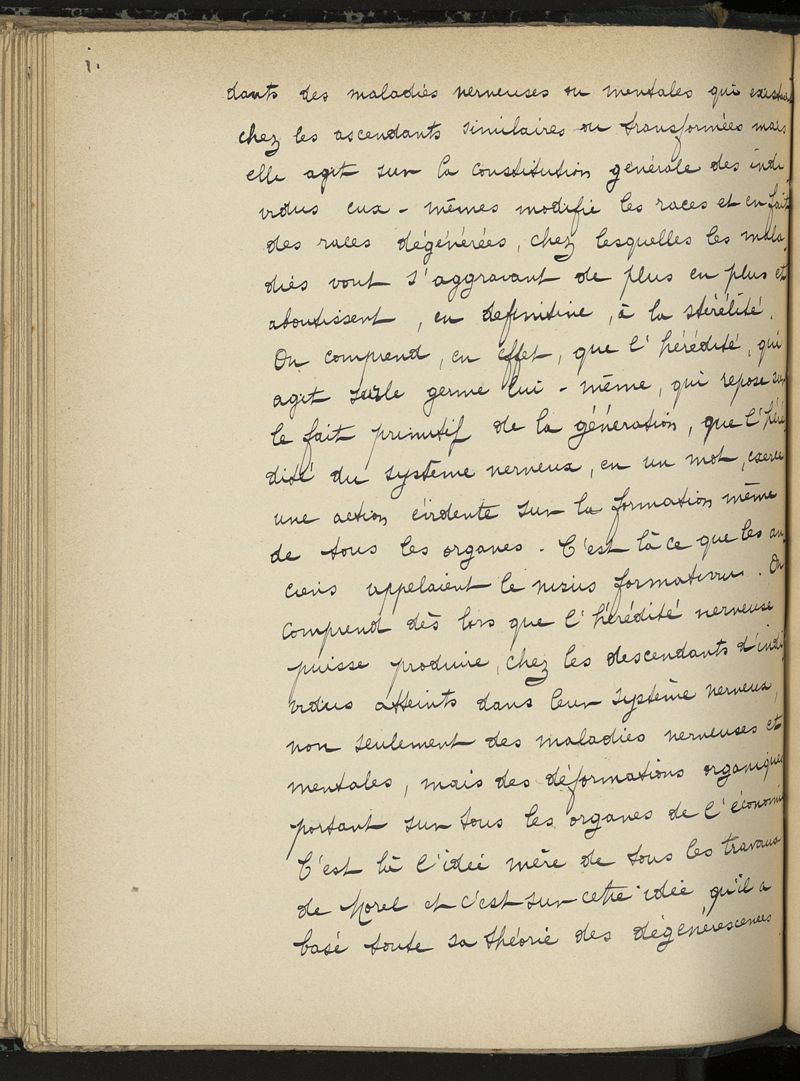 dants des maladies nerveuses ou mentales qui existant
chez les ascendants similaires ou transformées mais
elle agit sur la constitution générale des indi
vidus eux-mêmes modifie les races et en fait
des races dégénérées, chez lesquelles les mala
dies vont s'aggravant de plus en plus et
aboutissent, en definitive, à la stérélité.
On comprend, en effet, que l'hérédité, qui
agit sur le germe lui-même, qui repose sur
le fait primitif de la génération, que l'héré
dité du système nerveux, en un mot, exerce
une action évidente sur la formation même
de tous les organes. C'est là ce que les an
ciens appelaient le nizius formativus. On
comprend dès lors que l'hérédité nerveuse
puisse produire, chez les descendants d'indi
vidus atteints dans leur système nerveux,
non seulement des maladies nerveuses et
mentales, mais des déformations organiques
portant sur tous les organes de l'économie
C'est là l'idée mère de tous les travaux
de Morel et c'est sur cette idée qu'il a
basé toute sa théorie des dégénérescences